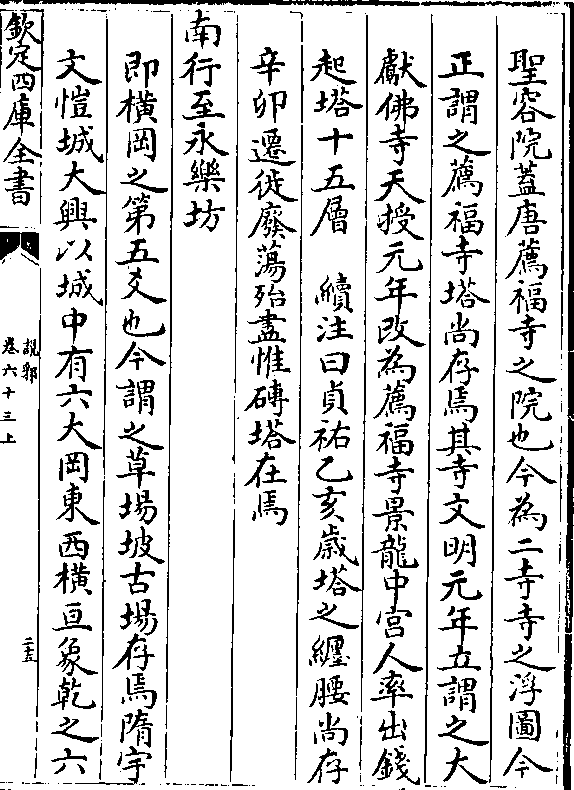 聖容院蓋唐薦福寺之院也今為二寺寺之浮圖今
正謂之薦福寺塔尚存焉其寺文明元年立謂之大
獻佛寺天授元年改為薦福寺景龍中宮人率出錢
起塔十五層　續注曰貞祐乙亥歲塔之纏腰尚存
辛卯遷徙廢蕩殆盡惟磚塔在焉
南行至永樂坊
即橫岡之第五爻也今謂之草場坡古場存焉隋宇
文愷城大興以城中有六大岡東西橫亘象乾之六
欽定四庫全書
說郛
卷六十三上
二十五